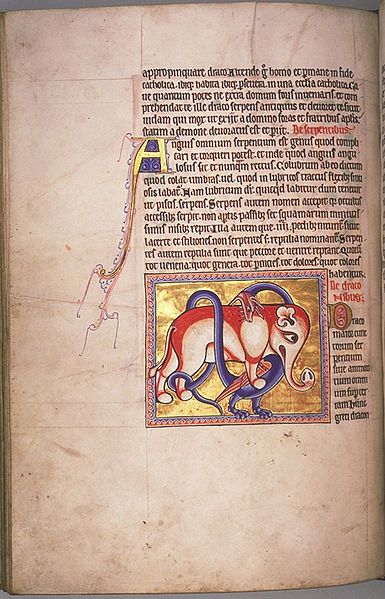 appropinquare draco. Attende g̊ homo et permane in fide
catholica. ibiq; habita. ibiq; pseuera. in una ecclia catholica. Ca
ue quantum potes ne extra domum foras inueniaris. et com
prehendat te ille draco serpens antiquus et deuoret te sicut
iudam qui mox ut exiit a domino foras et fratribus aplis
statim a demone deuoratus est et periit. De serpentibus.
Anguis omnium serpentium est genus quod compli
cari et torqueri potest. et inde quod anguis angu
losus sit et nunquam rectus. Colubrum ab eo dictum
quod colat umbras. uel quod in lubricos tractus flexibus sinu
osis labat̃. Nam lubricum dr̃. quicq̃d labitur dum tenetur
ut piscis. serpens. Serpens autem nomen accepit q̃ occultis
accessib; serpit. non aptis passib; set squamarum minutis
simis nisib; repit. Illa autem que .iiii. pedib; nitunt̃ sicut
lacerte et stiliones. non serpentes s; reptilia nominant̃. Serpen
tes autem reptilia sunt que pectore et uentre reptant. Quoꝝ
tot uenena quot genera. tot pnicies quot dolores. quot colores
habentur.
De draco
nibus.
Draco
maior cunc
torum ser
pentium
siue animan
tium omni
um super ter
ram hunc
greci dracon